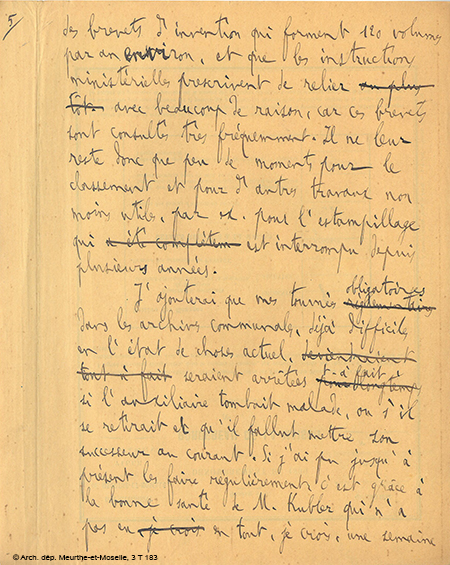 5/
des brevets d'invention qui forment 120 volumes
par an environ, et que les instructions
ministérielles prescrivent de relier au plus
tôt avec beaucoup de raison, car ces brevets
sont consultés très fréquemment. Il ne leur
reste donc que peu de moments pour le
classement et pour d'autres travaux non
moins utiles, par ex. pour l'estampillage
qui a été complètem est interrompu depuis
plusieurs années.
obligatoires
J'ajouterai que mes tournées réglementaires
dans les archives communales, déjà difficiles
en l'état de choses actuel, deviendraient
t. à fait
tout à fait seraient arrêtées
si l'auxiliaire tombait malade, ou s'il
se retirait et qu'il fallut mettre son
successeur au courant. Si j'ai pu jusqu'à
présent les faire régulièrement c'est grâce à
la bonne santé de M. Kubler qui n'a
pas eu je crois en tout, je crois, une semaine
© Arch. dép. Meurthe-et-Moselle, 3 T 183